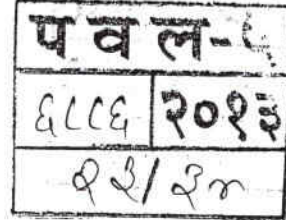 प व ल-५
६८८६ २०१३
२२/३४